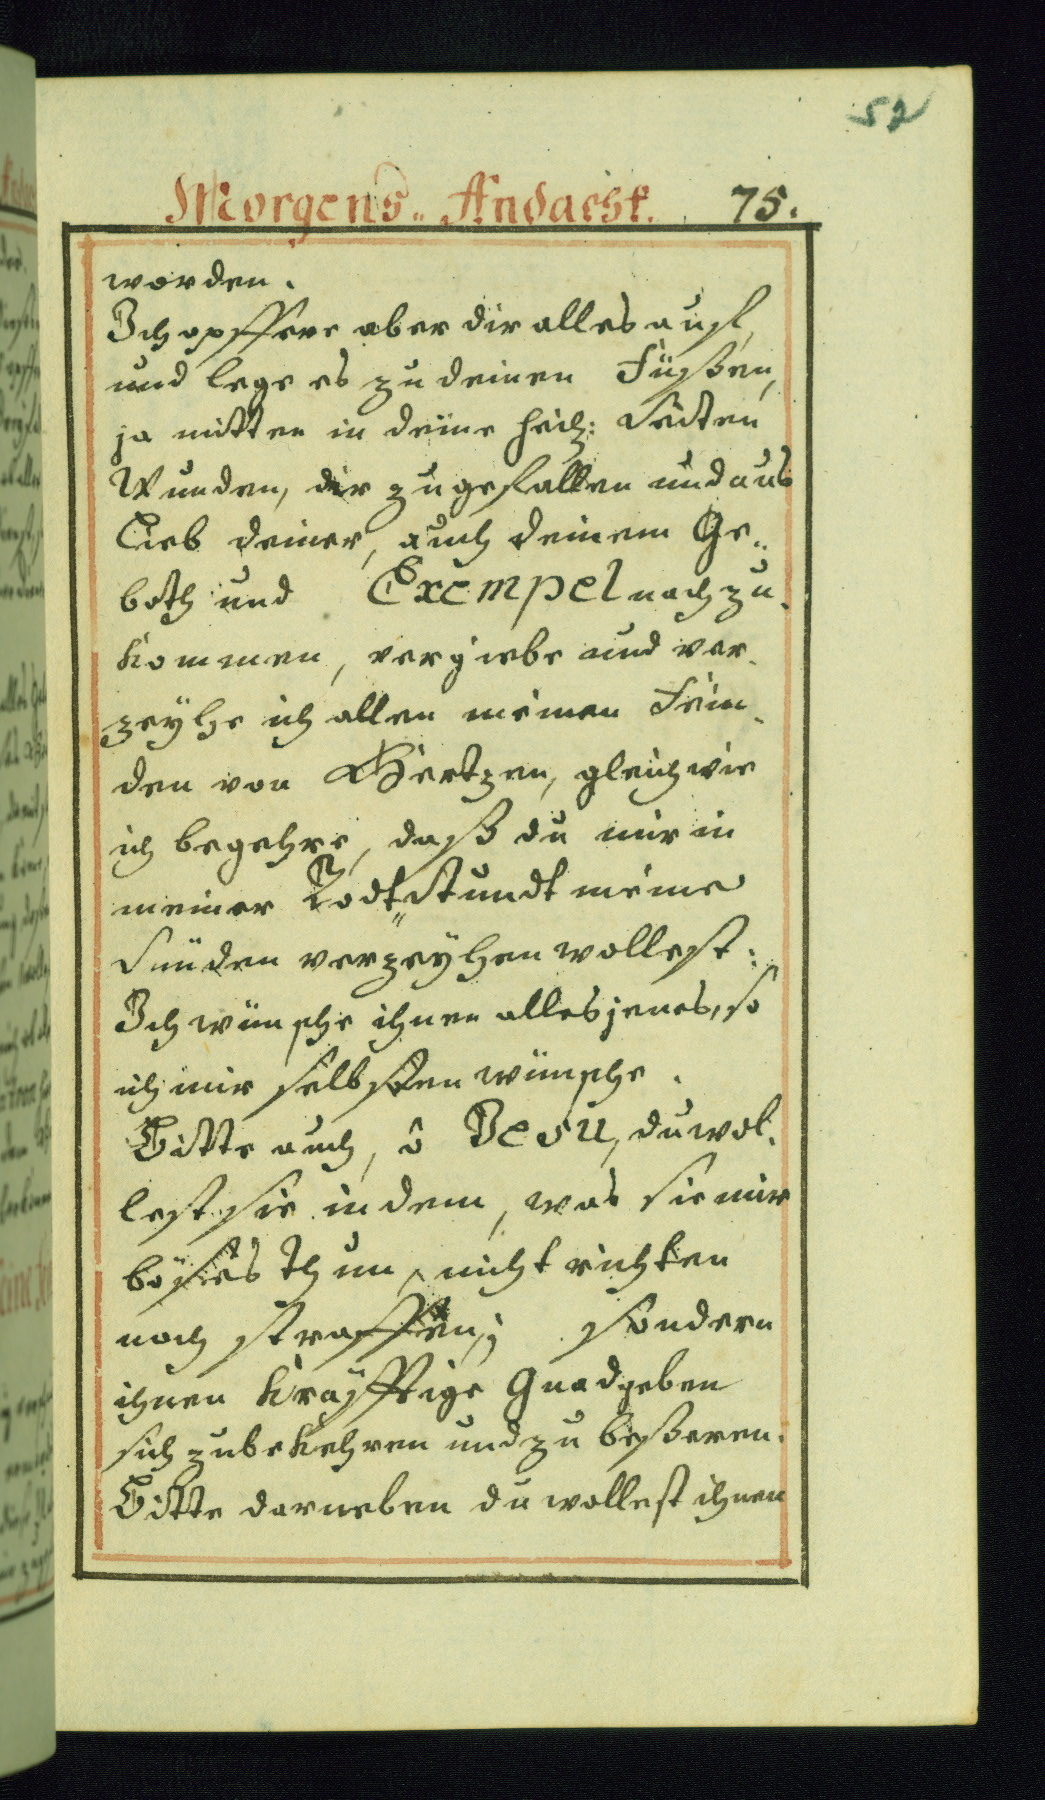 52
Morgens„ Andacht. 75.
worden.
Ich opffere aber dir alles auf,
und lege es zu deinen Füßen,
ja mitten in deine heilg: Seiten
Wunden, dir zu gefallen und aus
Lieb deiner, auch deinem Ge„
both und Exempel nachzu„
kommen, vergiebe und ver„
zeyhe ich allen meinen Fein„
den von Hertzen, gleich wie
ich begehre, daß du mir in
meiner Todt„Stundt meine
Sünden verzeyhen wollest:
Ich wünsche ihnen alles jenes, so
ich mir selbsten wünsche.
Bitte auch, ô Jesu, du wol„
lest sie in dem, was sie mir
böses thun, nicht richten
noch straffen; sondern
ihnen kräfftige Gnad geben
sich zu bekehren und zu beßeren.
Bitte darneben du wollest ihnen